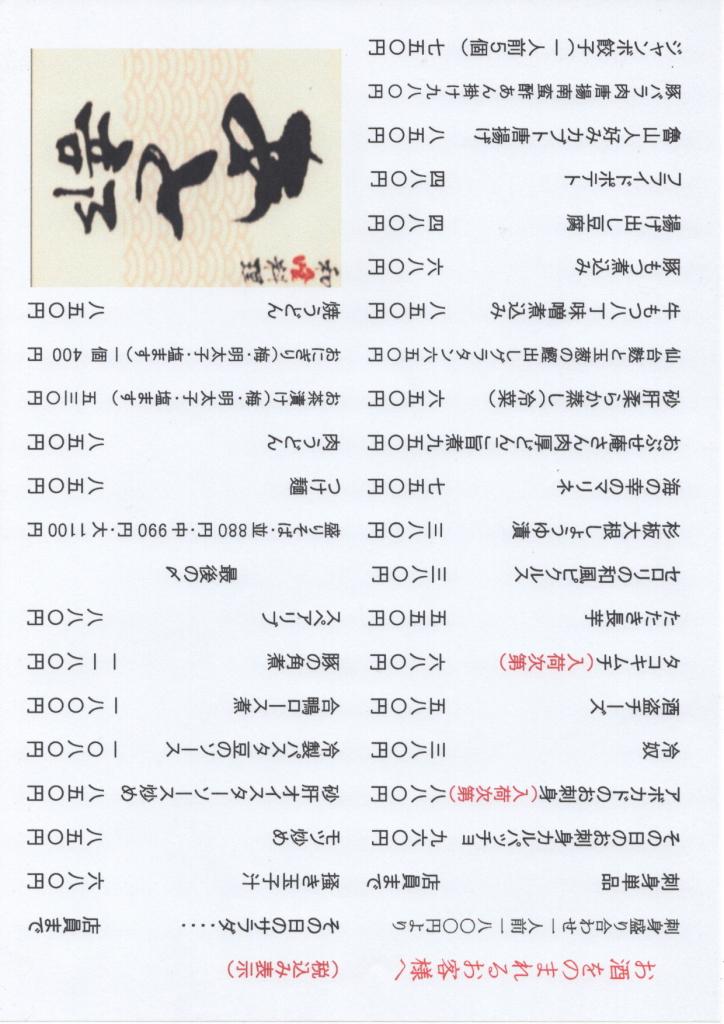 お酒をのまれるお客様へ
刺身盛り合わせ一人前一八〇〇円より
刺身単品 店員まで
その日のお刺身カルパッチョ 九六〇円
アボカドのお刺身(入荷次第)八八〇円
冷奴 三八〇円
酒盗チーズ 五八〇円
タコキムチ(入荷次第) 六八〇円
たたき長芋 五五〇円
セロリの和風ピクルス 三八〇円
杉板大根しょうゆ漬 三八〇円
海の幸のマリネ 七五〇円
おぶせ庵さん肉厚どんこ旨煮九五〇円
砂肝柔らか蒸し(冷菜) 六五〇円
仙台麩と玉葱の鰹出しグラタン六五〇円
牛もつ八丁味噌煮込み 八五〇円
豚もつ煮込み 六八〇円
揚げ出し豆腐 四八〇円
フライドポテト 四八〇円
魯山人好みカブト唐揚げ 八五〇円
豚バラ肉唐揚南蛮酢あん掛け九八〇円
ジャンボ餃子(一人前5個) 七五〇円
(税込み表示)
その日のサラダ・・・・ 店員まで
掻き玉子汁 六八〇円
モツ炒め 八五〇円
砂肝オイスターソース炒め 八五〇円
冷製パスタ豆のソース 一〇八〇円
合鴨ロース煮 一八〇〇円
豚の角煮 一一八〇円
スペアリブ 八八〇円
最後の〆
盛りそば・並・880円・中・990円・大・1100
つけ麺 八五〇円
肉うどん 八五〇円
お茶漬け(梅・明太子・塩ます) 五三〇円
おにぎり(梅・明太子・塩ます)一個 400円
焼うどん 八五〇円
あと部